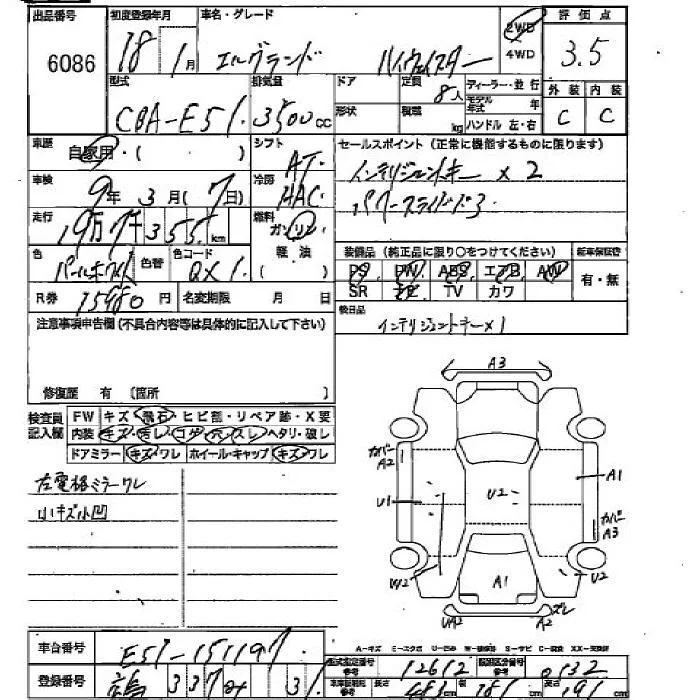 出品番号
6086
初度登録年月
18年1月
車名・グレード
エルグランド ハイウェイスター
2WD
4WD
評価点
3.5
型式
CBA-E51
排気量
3500cc
ドア
形状
定員
8人
積載
kg
ディーラー・並行
モデル年式 年
ハンドル 左・右
外装
C
内装
C
車歴
自家用・( )
シフト
AT
セールスポイント (正常に機能するものに限ります)
インテリジェントキー×2
パワースライドドア
車検
9年3月(7日)
冷房
AAC
走行
19万7千355km
燃料
ガソリン
軽油
( )
色
パールホワイト
色替
色コード
QX1
装備品 (純正品に限り○をつけてください)
PS. PW. ABS. エアB. AW
SR ナビ TV カワ
新車保証書
有・無
R券 15480円
名変期限 月 日
後日品
インテリジェントキー×1
注意事項申告欄(不具合内容等は具体的に記入して下さい)
修復歴 有 〔箇所 〕
検査員記入欄
FW キズ・飛石・ヒビ割・リペア跡・X要
内装 キズ・汚レ・コゲ・穴・スレ・ヘタリ・破レ
ドアミラー キズ・ワレ ホイール・キャップ キズ・ワレ
左電格ミラーワレ
小キズ小凹
A3
カバー
A2
U1
A1
U2
カバー
A3
W2
U2
A1
UA2
A2
ズレ
車台番号
E51-151197
登録番号
型式指定番号
12612
類別区分番号
0132
長さ
cm
cm
高さ
191cm